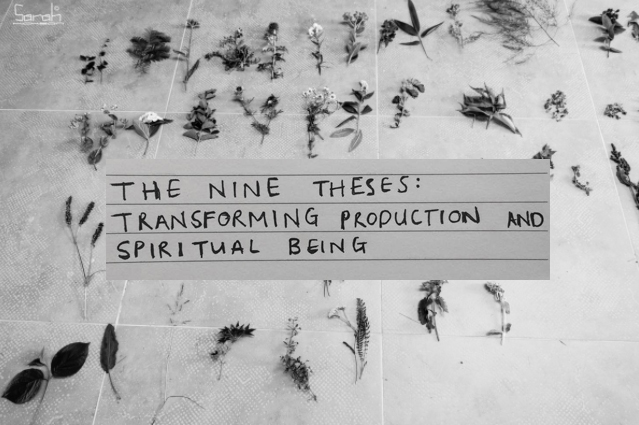 Sarah
THE NINE THESES:
TRANSFORMING PRODUCTION AND
SPIRITUAL BEING